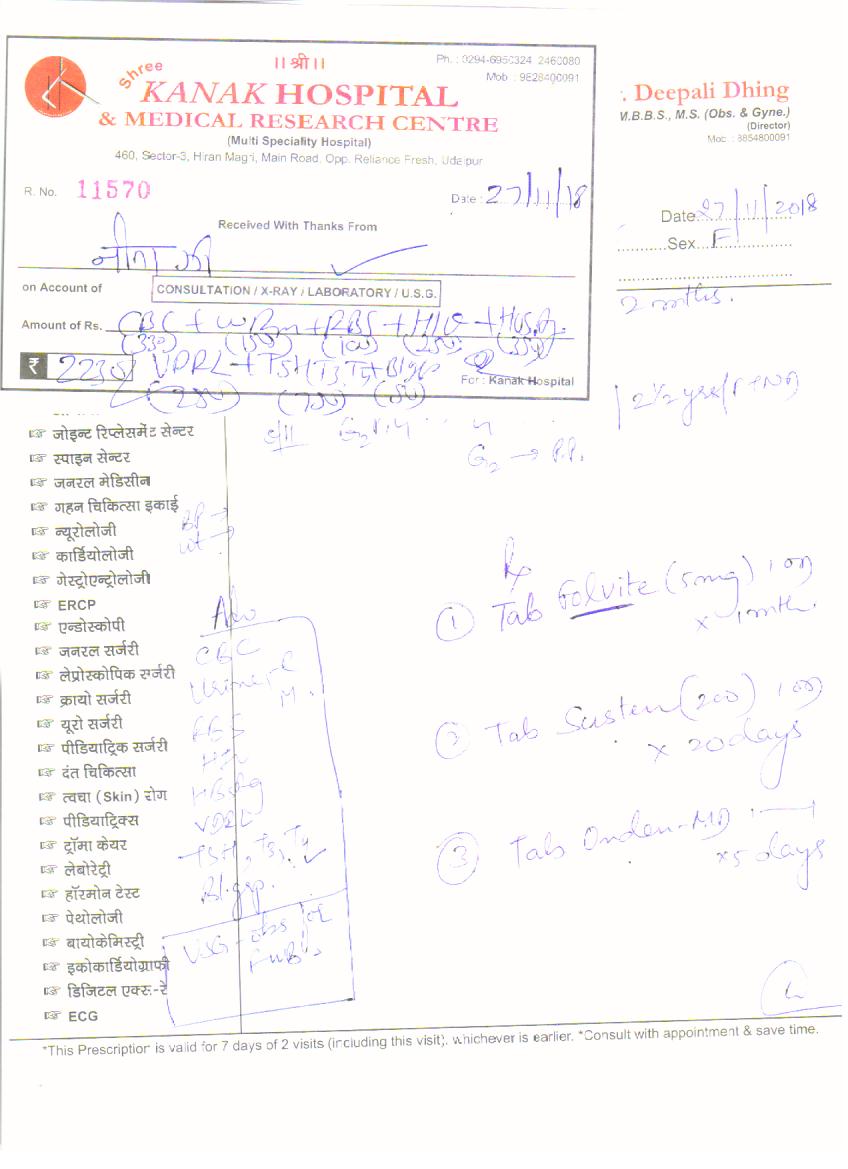 Shree
॥ श्री ॥
Ph. : 0294-6950324 2460080
Mob : 9828400091
KANAK HOSPITAL
& MEDICAL RESEARCH CENTRE
(Multi Speciality Hospital)
460, Sector-3, Hiran Magri, Main Road, Opp. Reliance Fresh, Udaipur
R. No. 11570
Date : 27/11/18
Received With Thanks From
on Account of CONSULTATION / X-RAY / LABORATORY / U.S.G.
Amount of Rs. CBC + + RBS + HIV +
(330) (150) (100)
₹ 2230/ VDRL + TSH (T3, T4 + Bl gp
For : Kanak Hospital
. Deepali Dhing
M.B.B.S., M.S. (Obs. & Gyne.)
(Director)
Moc. : 8854800091
Date 27/11/2018
Sex. F
2 mths.
2½ yrs
G2 → P.P.
जोइन्ट रिप्लेसमेंट सेन्टर
स्पाइन सेन्टर
जनरल मेडिसीन
गहन चिकित्सा इकाई
न्यूरोलोजी
कार्डियोलोजी
गेस्ट्रोएन्ट्रोलोजी
ERCP
एन्डोस्कोपी
जनरल सर्जरी
लेप्रोस्कोपिक सर्जरी
क्रायो सर्जरी
यूरो सर्जरी
पीडियाट्रिक सर्जरी
दंत चिकित्सा
त्वचा (Skin) रोग
पीडियाट्रिक्स
ट्रॉमा केयर
लेबोरेट्री
हॉरमोन टेस्ट
पेथोलोजी
बायोकेमिस्ट्री
इकोकार्डियोग्राफी
डिजिटल एक्स-रे
ECG
BP →
wt →
Adv
CBC
Urine
RBS
HIV
HBsAg
VDRL
TSH, T3, T4
Bl. gp.
USG - obs
Rx
① Tab Folvite (5mg) 1 OD
x 1 mth.
② Tab Susten (200) 1 OD
x 20 days
③ Tab Onden-MD
x 5 days
*This Prescription is valid for 7 days of 2 visits (including this visit). whichever is earlier. *Consult with appointment & save time.